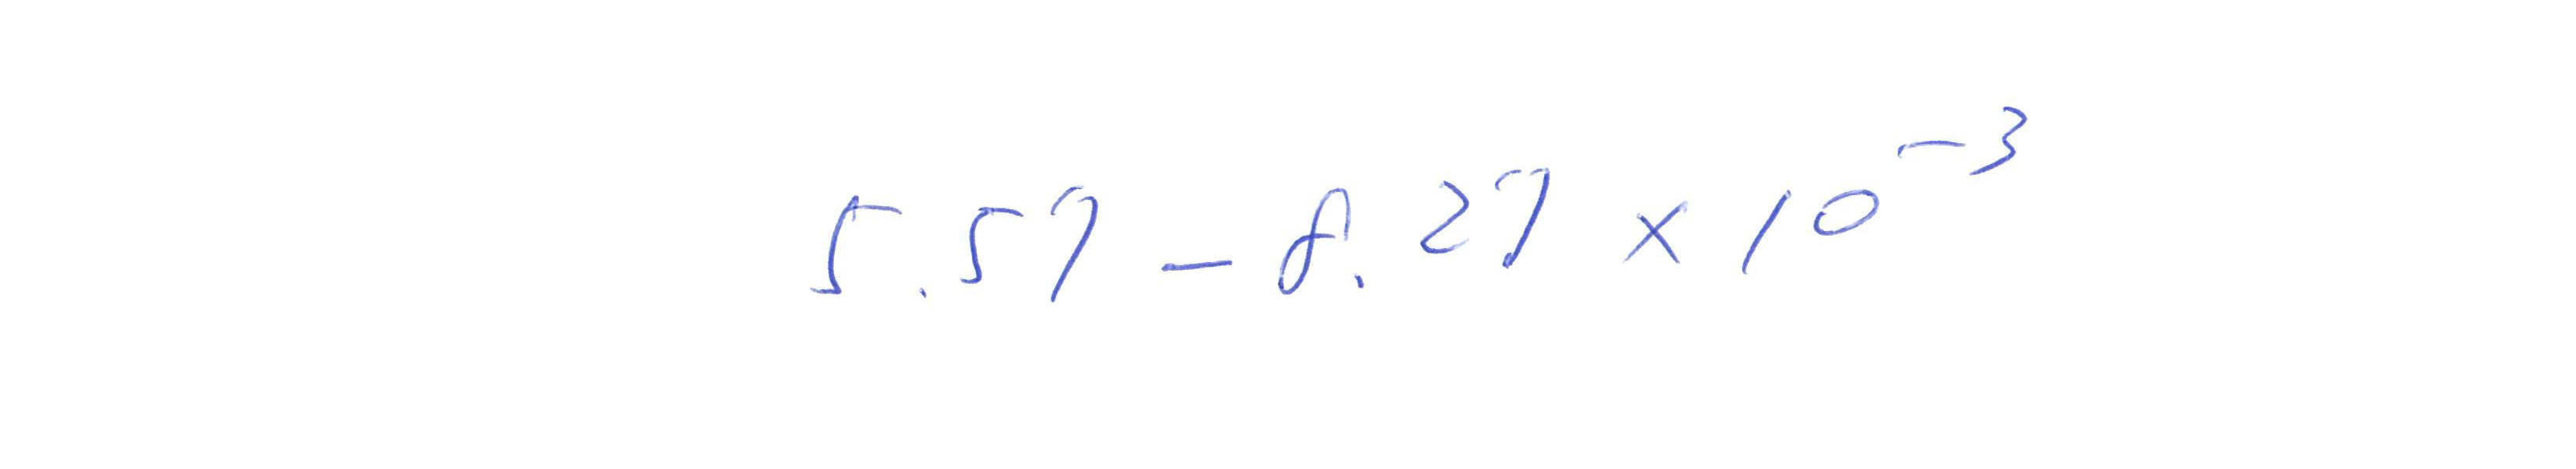 5.57 - 8.27 × 10⁻³